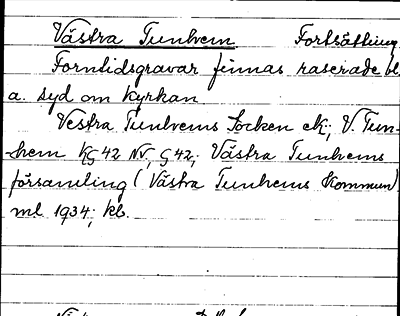 Västra Tunhem Fortsättning.
Forntidsgravar finnas raserade bl.
a. syd om kyrkan
Vestra Tunhems Socken ek; V. Tun-
hem KG 42 NV, G 42; Västra Tunhems
församling (Västra Tunhems kommun)
ml 1934; kb.